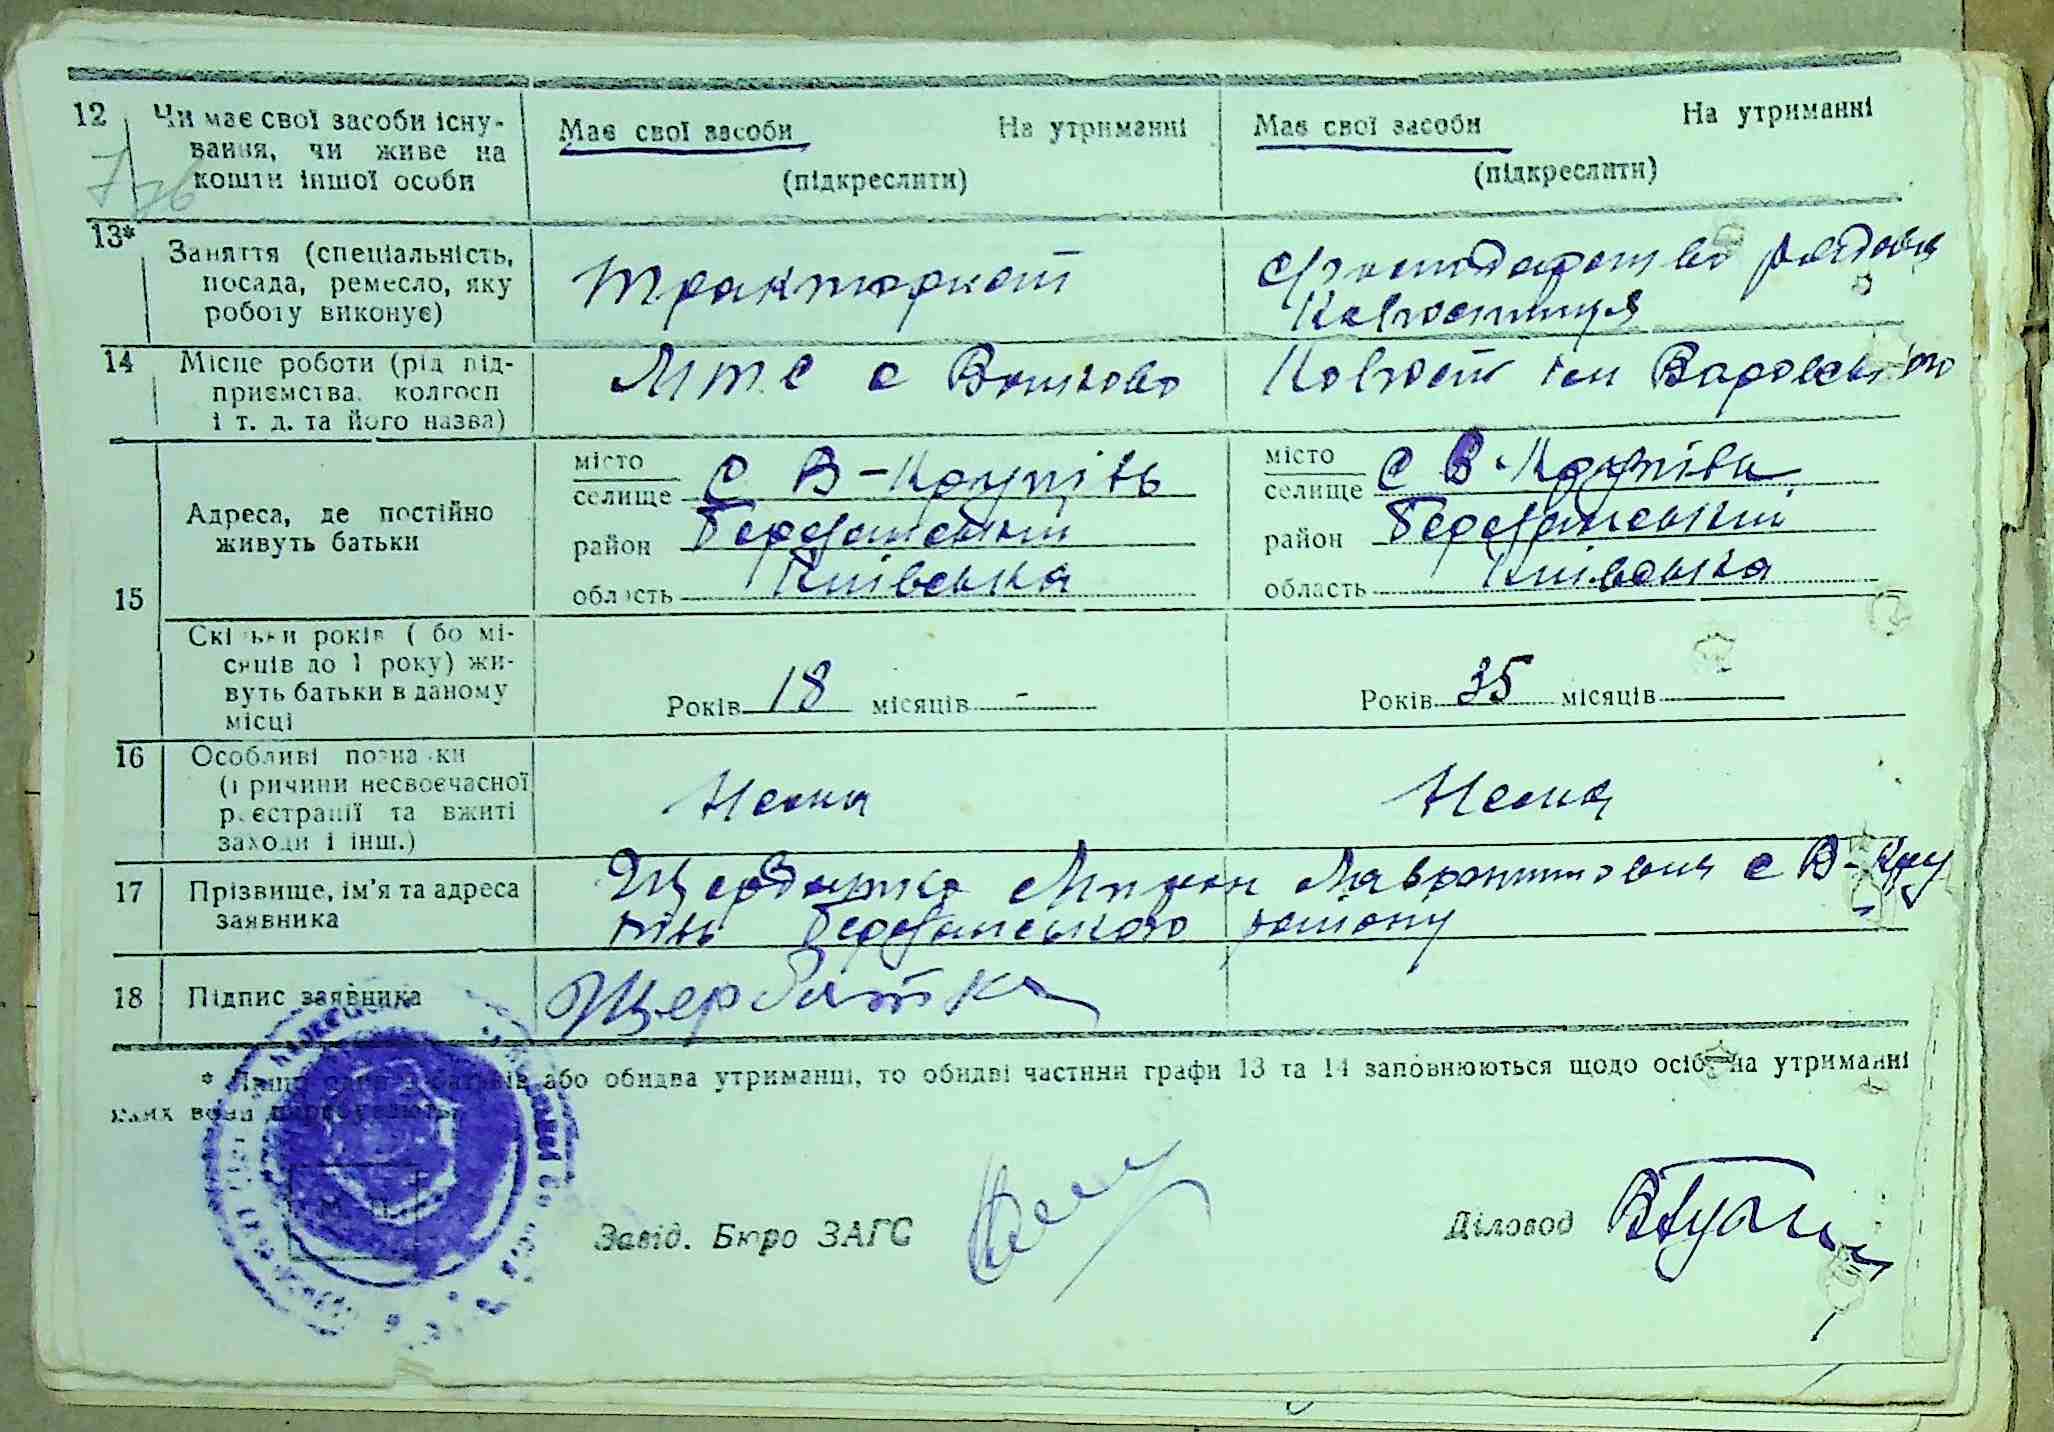 12 Чи має свої засоби існу-
вання, чи живе на
кошти іншої особи
Має свої засоби На утриманні
(підкреслити)
Має свої засоби На утриманні
(підкреслити)
13* Заняття (спеціальність,
посада, ремесло, яку
роботу виконує)
Тракторист
рядова
Колгоспниця
14 Місце роботи (рід під-
приємства, колгосп
і т. д. та його назва)
МТС с
Колгосп ім
15 Адреса, де постійно
живуть батьки
місто
селище с В-Крупіль
район Березанський
область Київська
місто
селище с В-Крупіль
район Березанський
область Київська
Скільки років (або мі-
сяців до 1 року) жи-
вуть батьки в даному
місці
Років 18 місяців -
Років 35 місяців -
16 Особливі познаки
(причини несвоєчасної
реєстрації та вжиті
заходи і інш.)
Нема
Нема
17 Прізвище, ім'я та адреса
заявника
Щербатко с В-Кру
піль Березанського району
18 Підпис заявника
Щербатко
* Якщо один з батьків або обидва утриманці, то обидві частини графи 13 та 14 заповнюються щодо осіб, на утриманні
яких вони перебувають.
М. П.
Завід. Бюро ЗАГС
Діловод